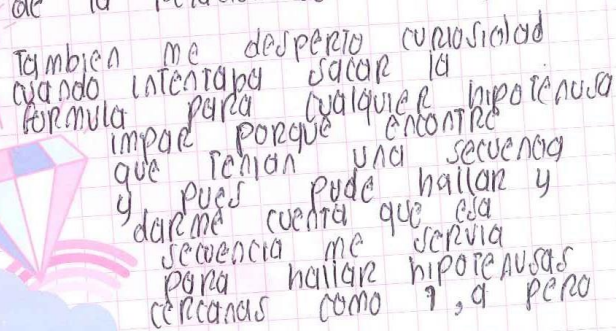 de la
Tambien me desperto curiosidad
cuando intentaba sacar la
formula para cualquier hipotenusa
impar porque encontre
que tenian una secuencia
y pues pude hallar y
darme cuenta que esa
secuencia me servia
para hallar hipotenusas
cercanas como 7, 9 pero